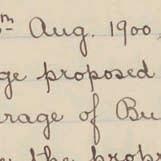 m Aug. 1900,
ge proposed
rage of Bu
the prop